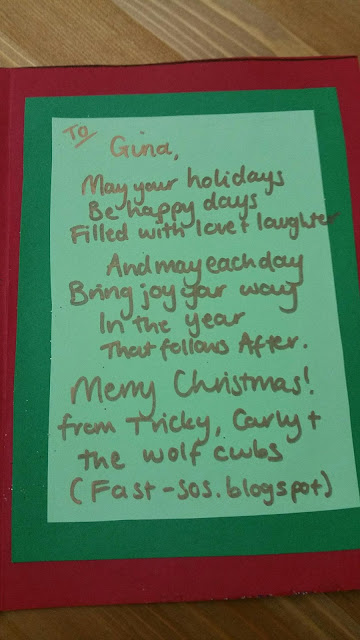 To
Gina,
May your holidays
Be happy days
Filled with love + laughter
And may each day
Bring joy your way
In the year
That follows After.
Merry Christmas!
from Tricky, Carly +
the wolf cubs
(Fast-sos.blogspot)